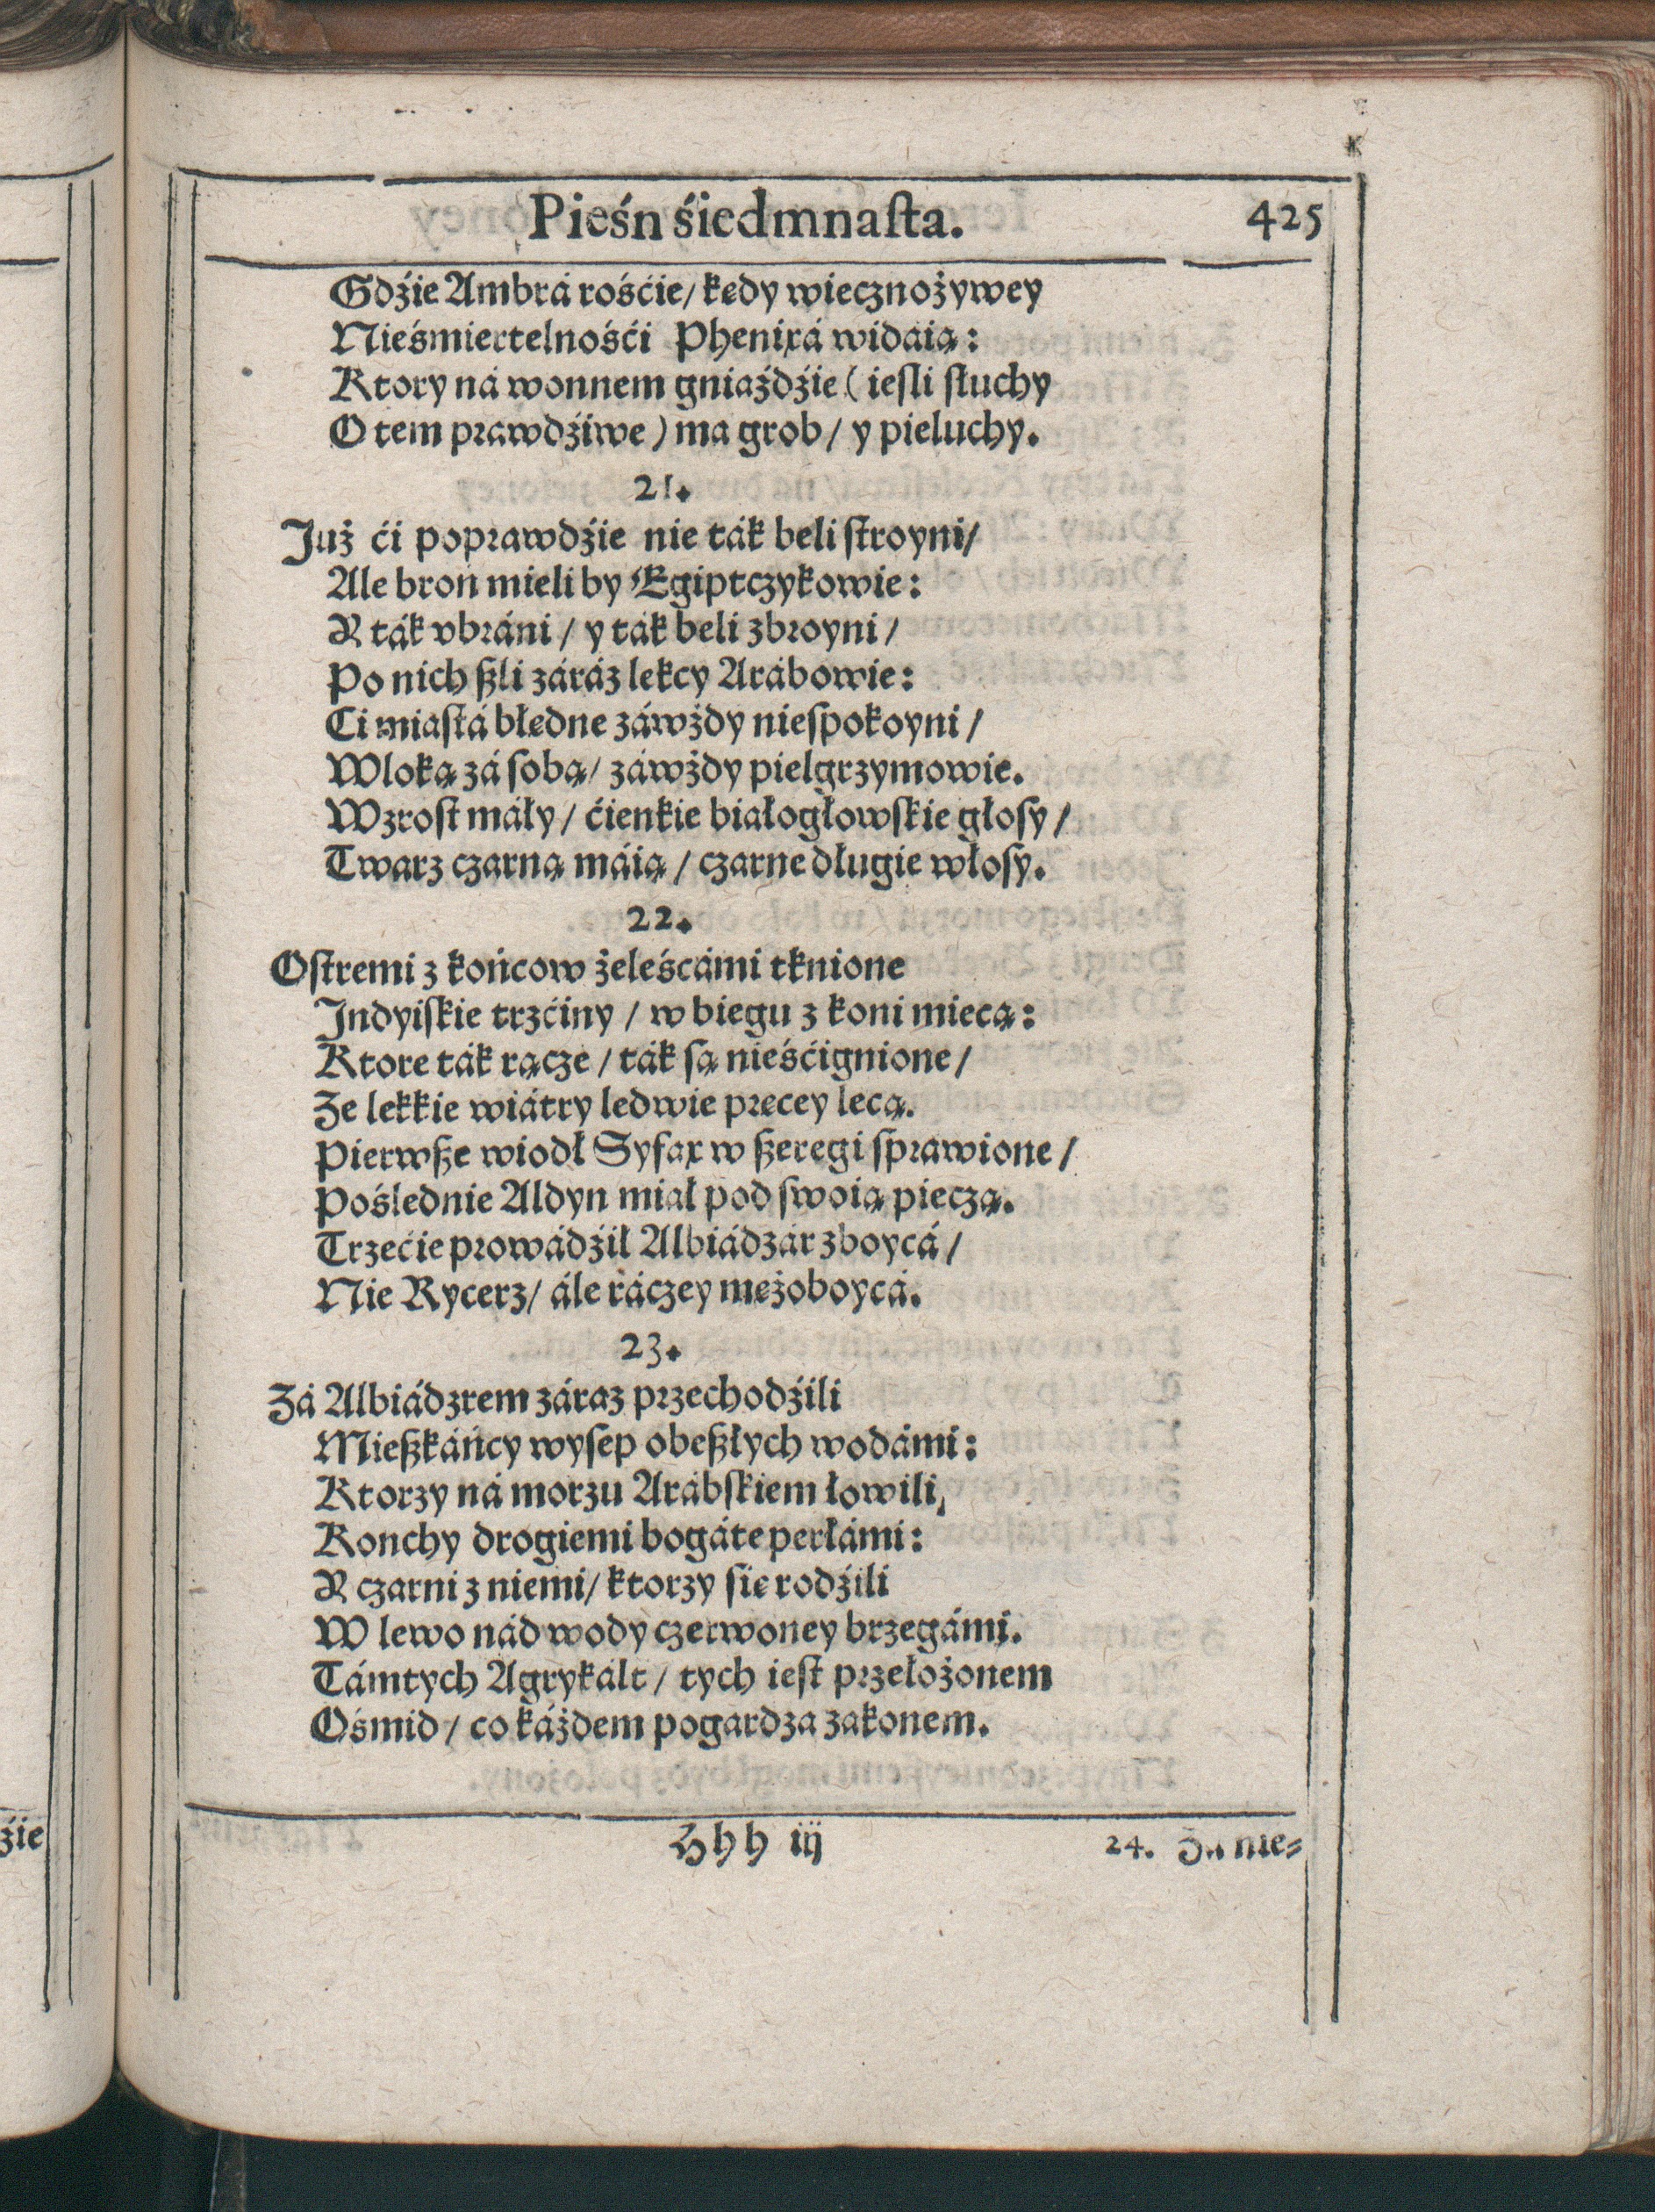 Pieśń śiedmnaſta. 425
Gdźie Ambrá rośćie/ kędy wiecznożywey
Nieśmiertelnośći Phenixá widáią:
Ktory ná wonnem gniaźdźie (ieſli ſłuchy
O tem prawdźiwe) ma grob/ y pieluchy.
21.
Już ći poprawdźie nie ták beli ſtroyni/
Ale broń mieli by Egiptczykowie:
A ták vbráni/ y ták beli zbroyni/
Po nich ßli záráz lekcy Arábowie:
Ci miaſtá błędne záwżdy nieſpokoyni/
Wloką zá ſobą/ záwżdy pielgrzymowie.
Wzroſt máły/ ćienkie białogłowſkie głoſy/
Twarz czarną máią/ czarne długie włoſy.
22.
Oſtremi z końcow żeleścámi tknione
Indyiſkie trzćiny/ w biegu z koni miecą:
Ktore ták rącze/ ták ſą nieśćignione/
Ze lekkie wiátry ledwie pręcey lecą.
Pierwße wiodł Syfax w ßeregi ſprawione/
Poślednie Aldyn miał pod ſwoią pieczą.
Trzećie prowádźił Albiádzár zboycá/
Nie Rycerz/ ále ráczey mężoboycá.
23.
Zá Albiádzrem záraz przechodźili
Mießkáńcy wyſep obeßłych wodámi:
Ktorzy ná morzu Arábſkiem łowili,
Konchy drogiemi bogáte perłámi:
A czarni z niemi/ ktorzy ſię rodźili
W lewo nád wody czerwoney brzegámi.
Támtych Agrykált/ tych ieſt przełożonem
Ośmid/ co káżdem pogardza zakonem.
Hhh iij 24. Zá nie⸗
źie